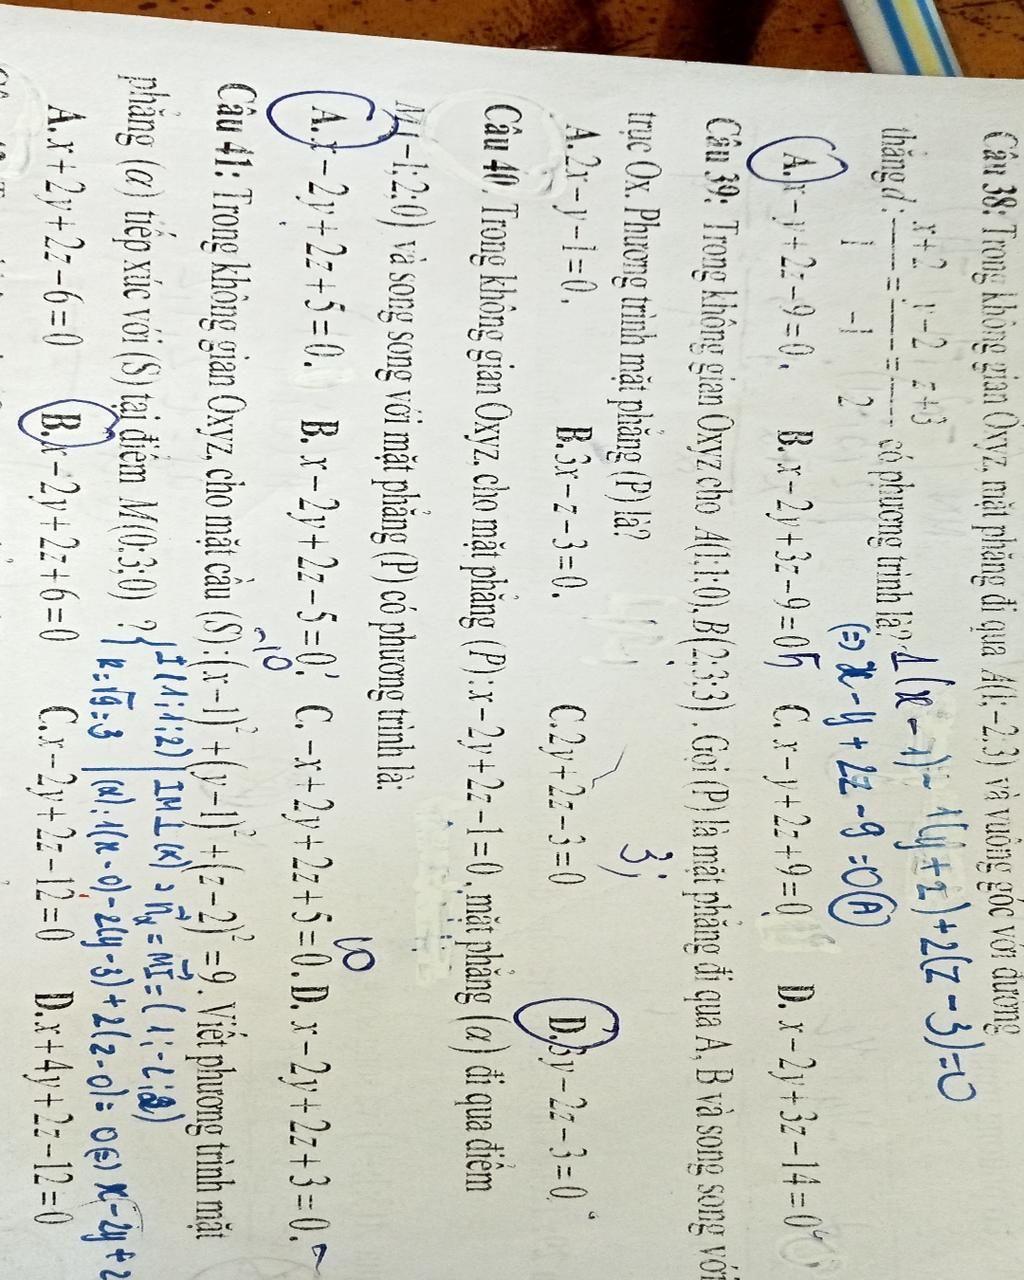 Câu 38: Trong không gian Oxyz, mặt phẳng đi qua A(1;-2;3) và vuông góc với đường
thẳng d: (x+2)/1 = (y-2)/-1 = (z+3)/2 có phương trình là? 1(x-1)-1(y+2)+2(z-3)=0
(=) x-y+2z-9=0 (A)
A. x-y+2z-9=0. B. x-2y+3z-9=0 C. x-y+2z+9=0 D. x-2y+3z-14=0
Câu 39: Trong không gian Oxyz cho A(1;1;0), B(2;3;3). Gọi (P) là mặt phẳng đi qua A, B và song song với
trục Ox. Phương trình mặt phẳng (P) là? 3;
A. 2x-y-1=0. B. 3x-z-3=0. C. 2y+2z-3=0 D. 3y-2z-3=0.
Câu 40. Trong không gian Oxyz, cho mặt phẳng (P): x-2y+2z-1=0, mặt phẳng (α) đi qua điểm
M(-1;2;0) và song song với mặt phẳng (P) có phương trình là:
A. x-2y+2z+5=0. B. x-2y+2z-5=0. C. -x+2y+2z+5=0. D. x-2y+2z+3=0.
Câu 41: Trong không gian Oxyz, cho mặt cầu (S): (x-1)²+(y-1)²+(z-2)²=9. Viết phương trình mặt
phẳng (α) tiếp xúc với (S) tại điểm M(0;3;0) ? { I(1;1;2) | IM ⊥ (α) → n⃗α = MI⃗ = (1;-2;2)
R=√9=3 | (α): 1(x-0)-2(y-3)+2(z-0)=0 (=) x-2y+2
A. x+2y+2z-6=0 B. x-2y+2z+6=0 C. x-2y+2z-12=0 D. x+4y+2z-12=0